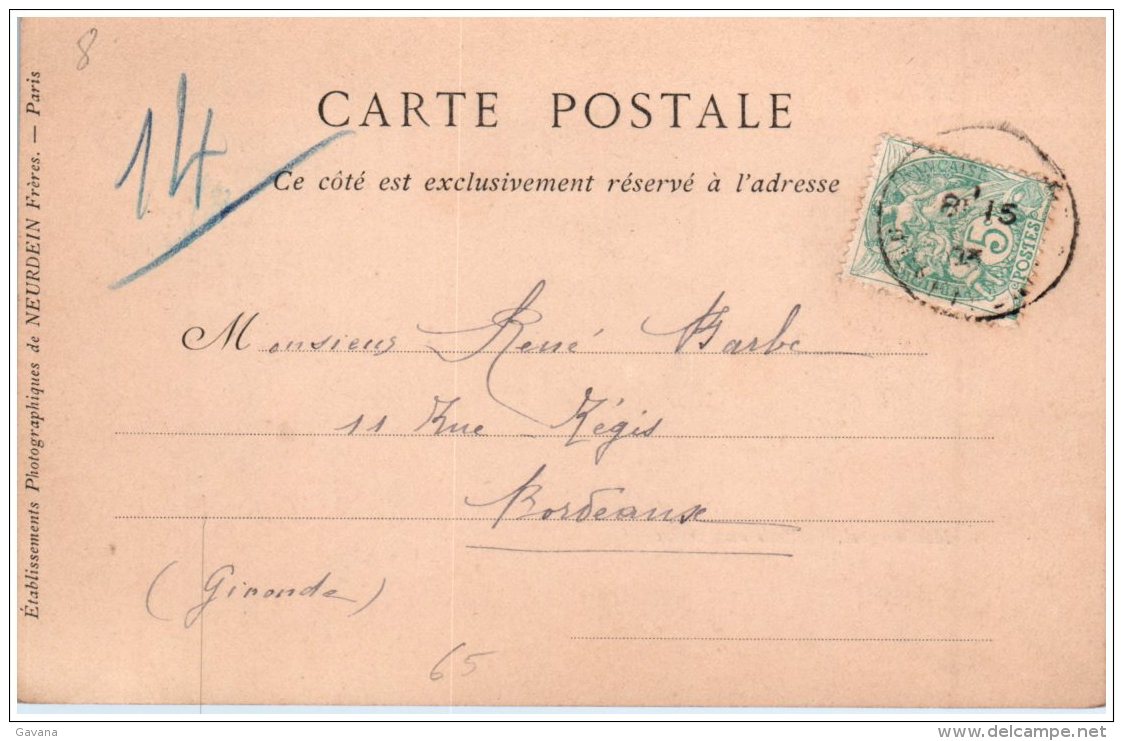 8
14
CARTE POSTALE
Ce côté est exclusivement réservé à l'adresse
Établissements Photographiques de NEURDEIN Frères. — Paris
FRANÇAISE
8 15
5
POSTES
Monsieur René Barbe
11 Rue Régis
Bordeaux
(Gironde)
65
Gavana
© delcampe.net